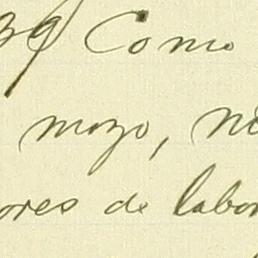 39) Como
mozo, n
ores de labor